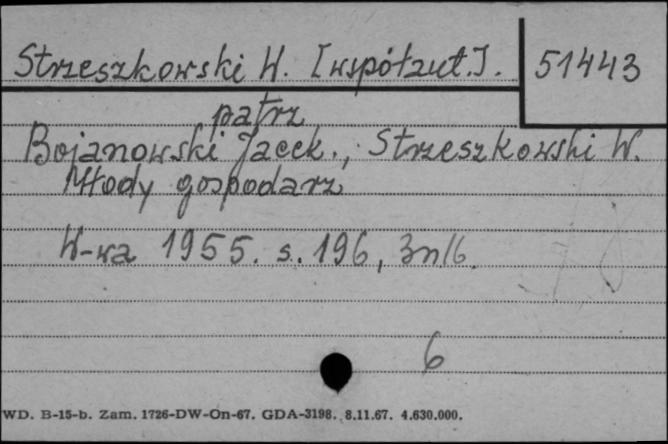 Strzeszkowski W. [współaut.].
51443
patrz
Bojanowski Jacek., Strzeszkowski W.
Młody gospodarz
W-wa 1955. s. 196, 3nlb.
6
WD. B-15-b. Zam. 1726-DW-On-67. GDA-3198. 8.11.67. 4.630.000.